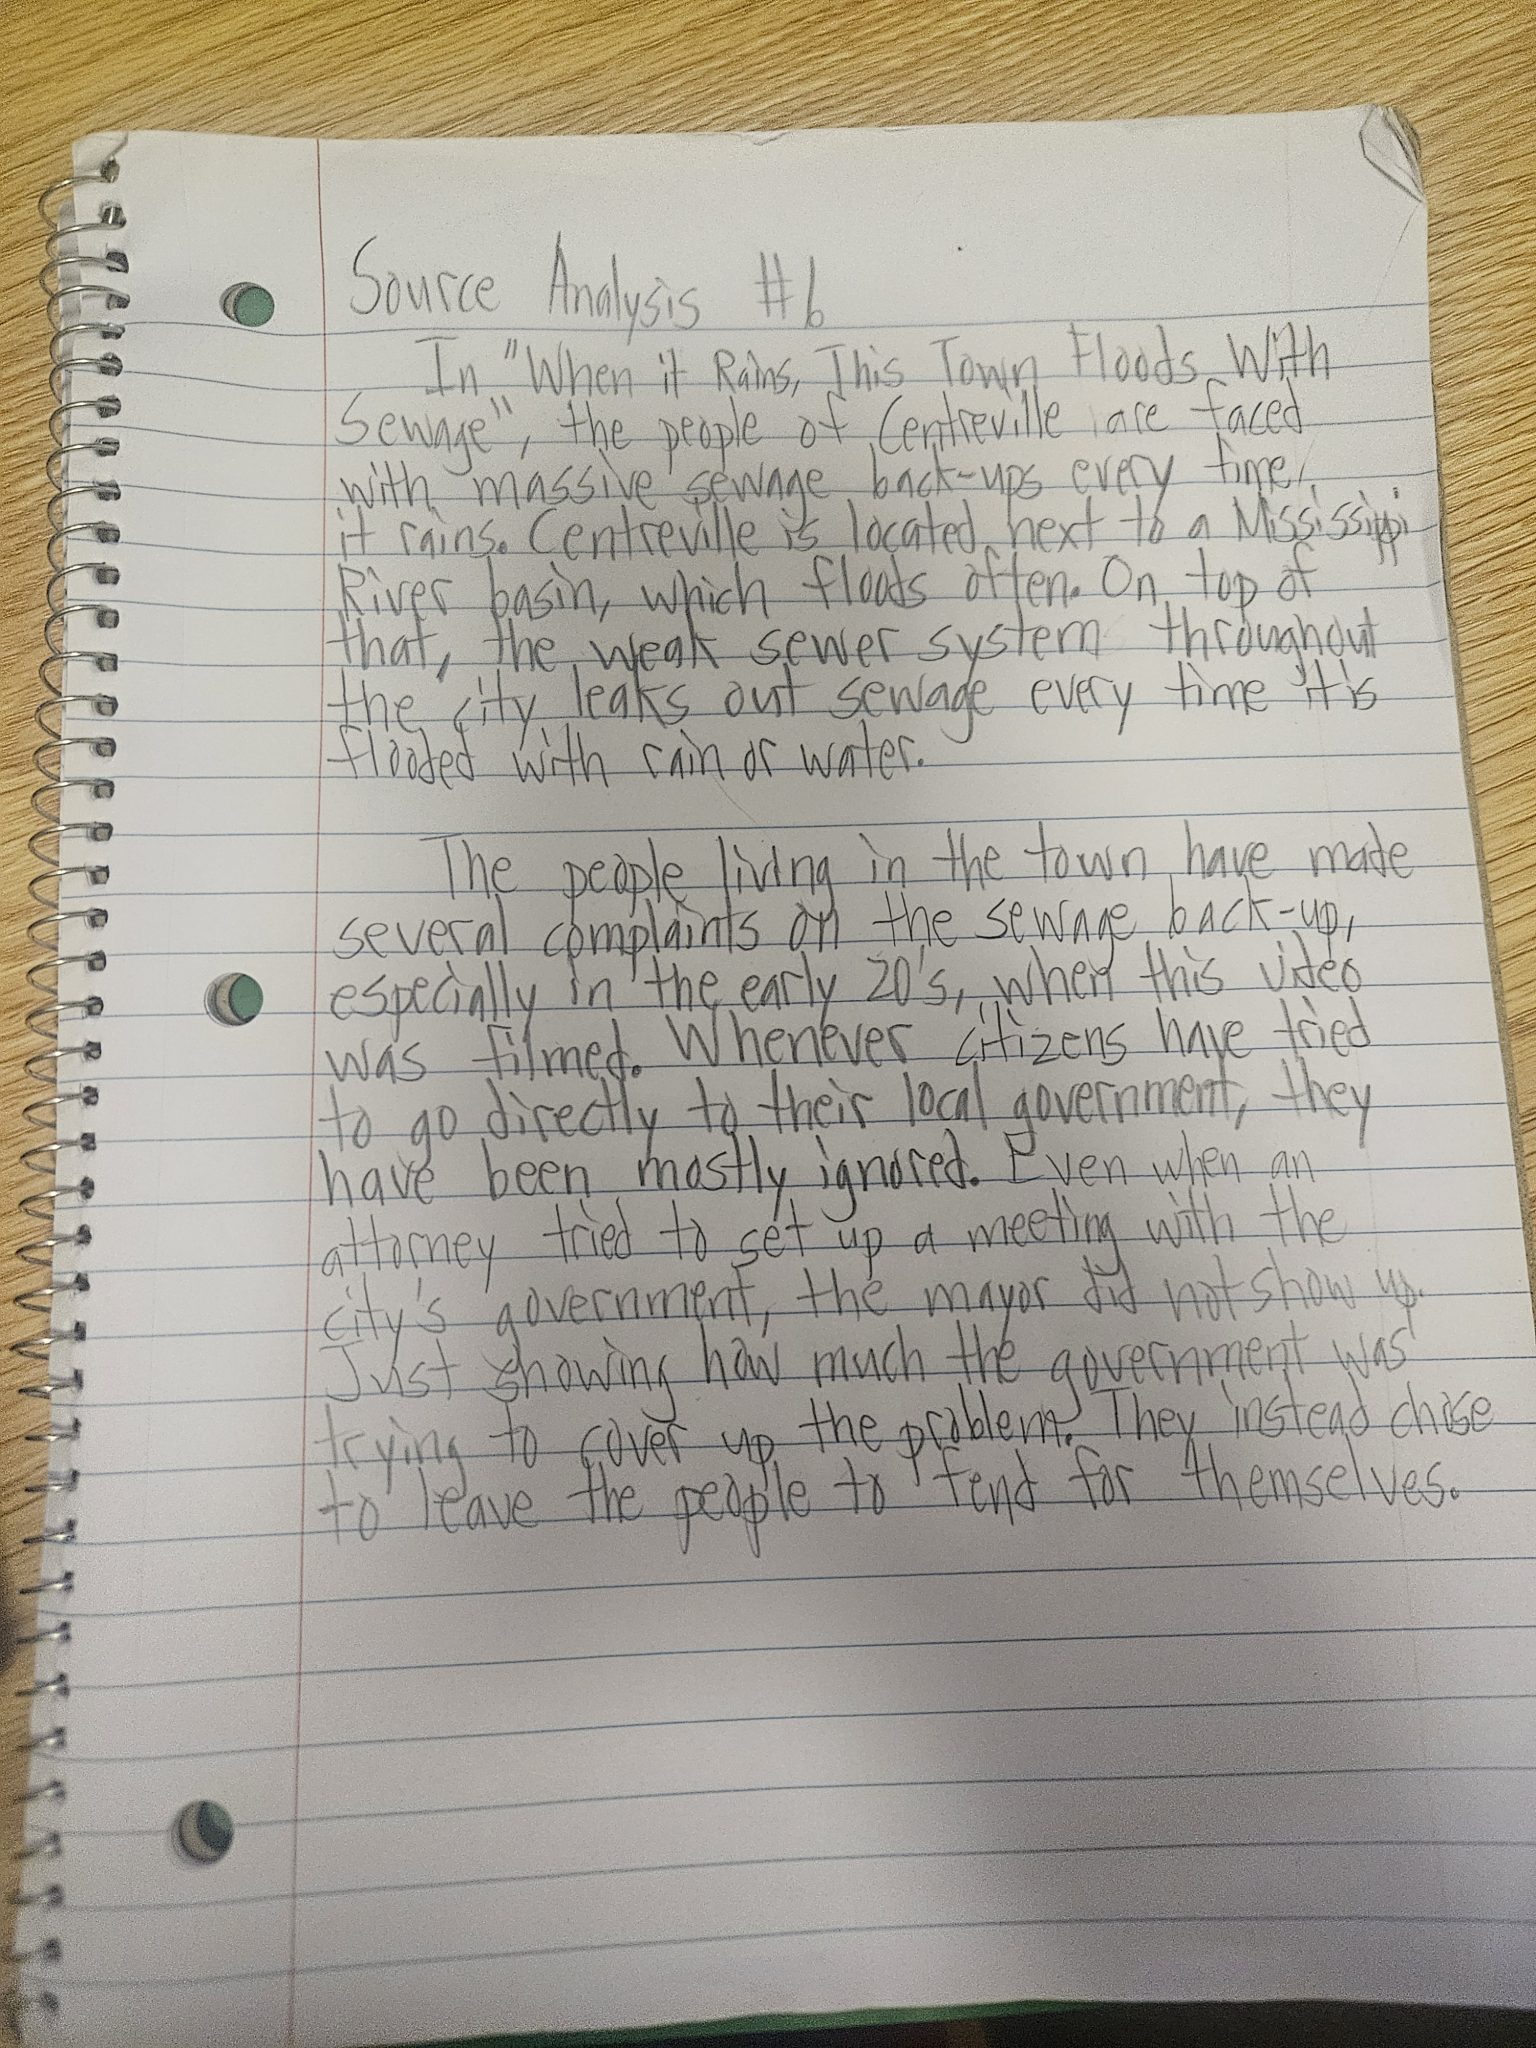 Source Analysis #6
In "When it Rains, This Town Floods With
Sewage", the people of Centreville are faced
with massive sewage back-ups every time
it rains. Centreville is located next to a Mississippi
River basin, which floods often. On top of
that, the weak sewer system throughout
the city leaks out sewage every time it is
flooded with rain or water.
The people living in the town have made
several complaints on the sewage back-up,
especially in the early 20's, when this video
was filmed. Whenever citizens have tried
to go directly to their local government, they
have been mostly ignored. Even when an
attorney tried to set up a meeting with the
city's government, the mayor did not show up.
Just showing how much the government was
trying to cover up the problem. They instead chose
to leave the people to fend for themselves.